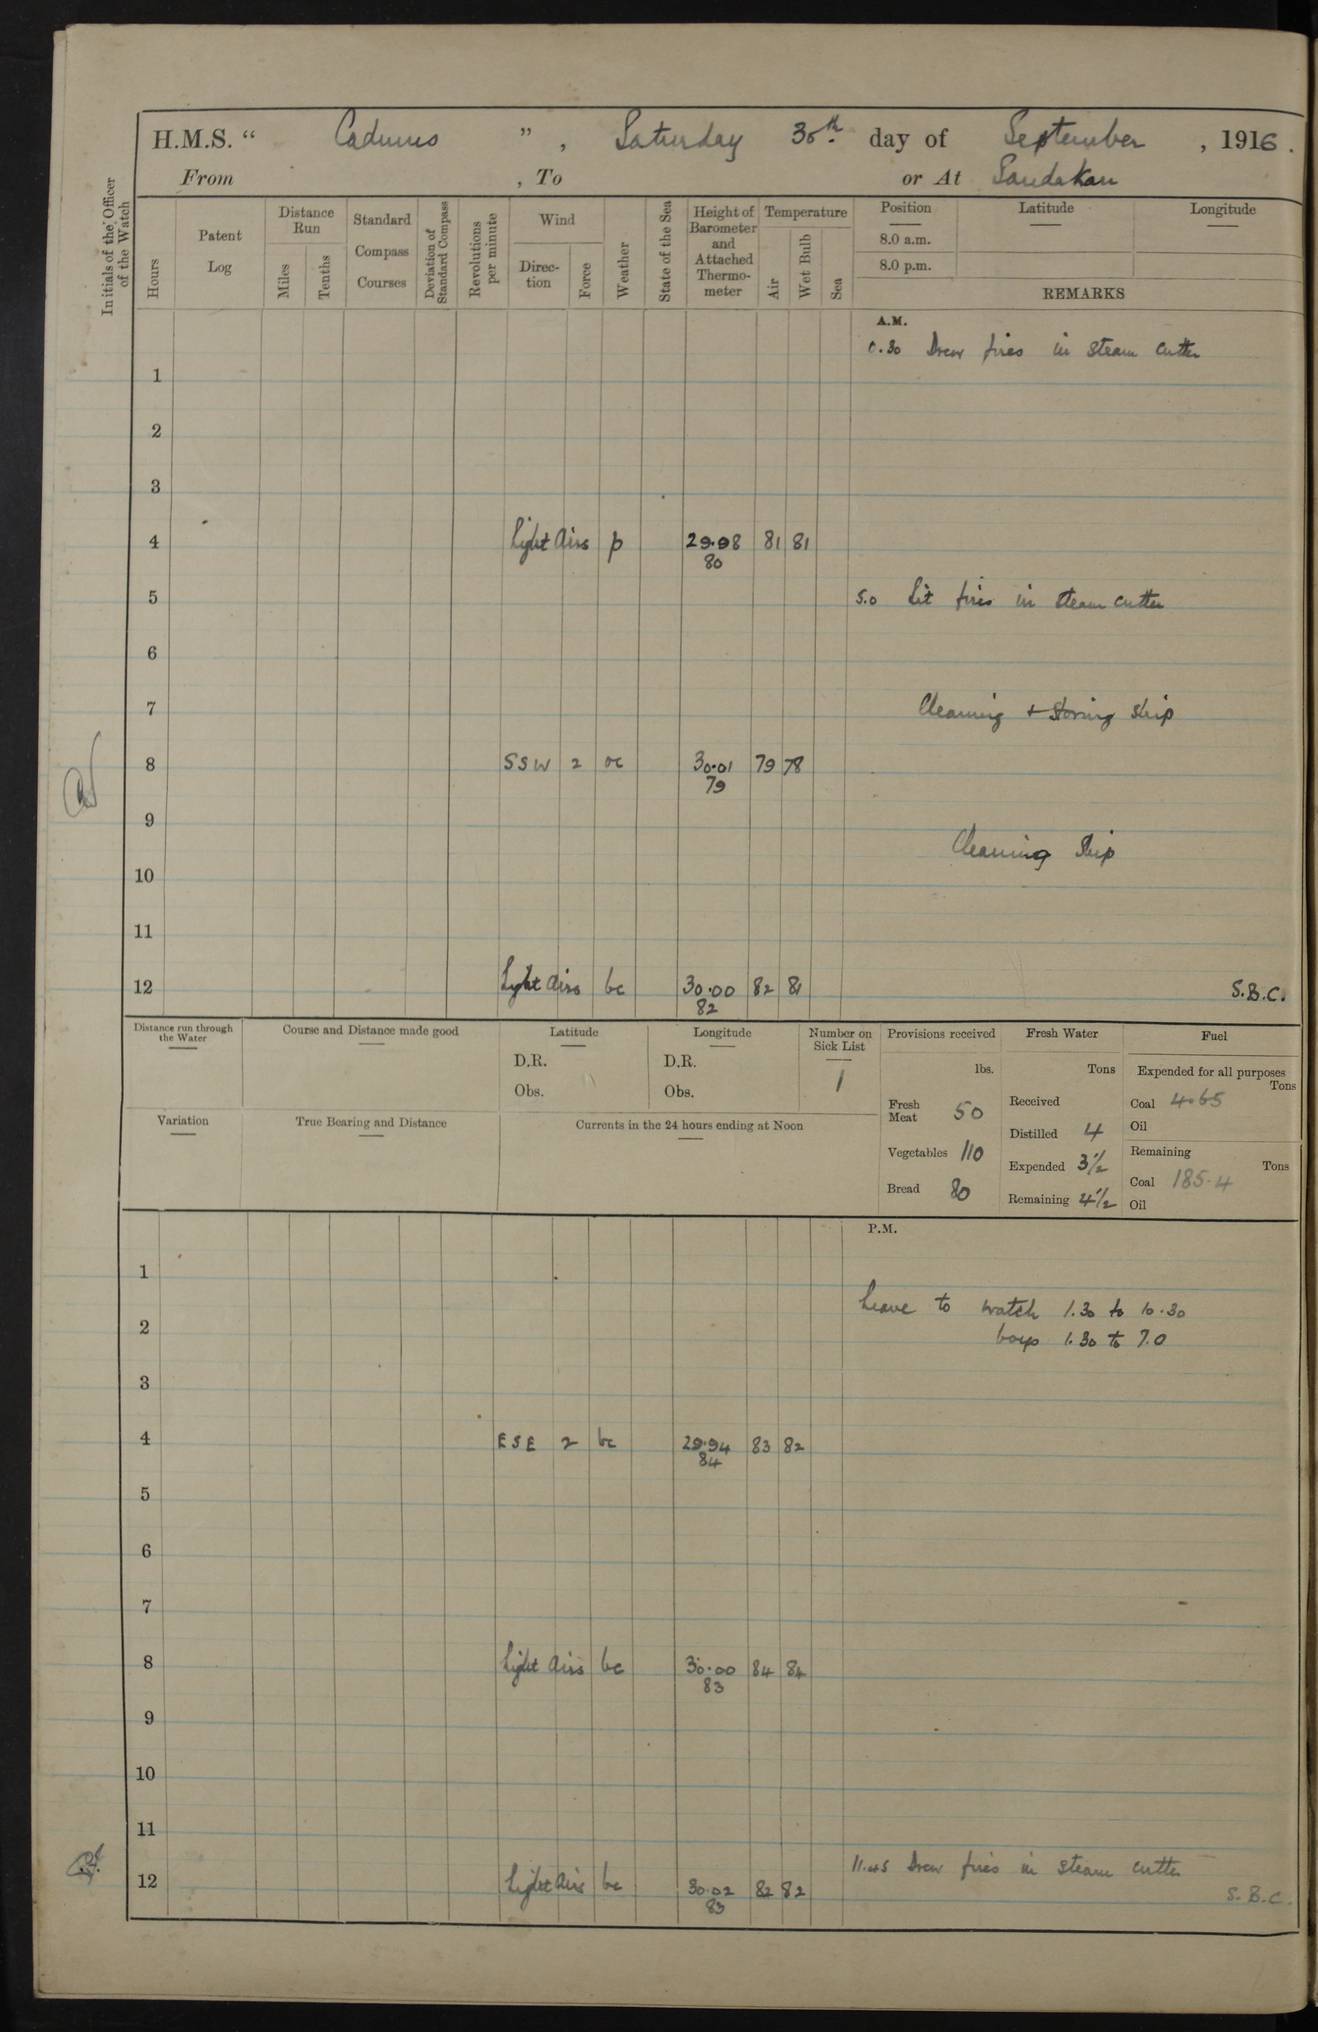 H.M.S. “ Cadmus ” , Saturday 30th day of September , 1916.
From , To or At Sandakan
Initials of the Officer of the Watch
Hours
Patent Log
Distance Run
Miles
Tenths
Standard Compass Courses
Deviation of Standard Compass
Revolutions per minute
Wind
Direc-tion
Force
Weather
State of the Sea
Height of Barometer and Attached Thermo-meter
Temperature
Air
Wet Bulb
Sea
Position Latitude Longitude
8.0 a.m.
8.0 p.m.
REMARKS
A.M.
0.30 Drew fires in steam cutter
1
2
3
4 Light Airs p 29.98 81 81
80
5 5.0 Lit fires in steam cutter
6
7 Cleaning + storing ship
8 SSW 2 oc 30.01 79 78
79
9
Cleaning Ship
10
11
12 Light Airs bc 30.00 82 81 S.B.C.
82
Distance run through the Water
Course and Distance made good
Latitude
D.R.
Obs.
Longitude
D.R.
Obs.
Number on Sick List
1
Variation
True Bearing and Distance
Currents in the 24 hours ending at Noon
Provisions received
lbs.
Fresh Meat 50
Vegetables 110
Bread 80
Fresh Water
Tons
Received
Distilled 4
Expended 3½
Remaining 4½
Fuel
Expended for all purposes
Tons
Coal 4.65
Oil
Remaining
Tons
Coal 185.4
Oil
P.M.
1
Leave to watch 1.30 to 10.30
2 boys 1.30 to 7.0
3
4 ESE 2 bc 29.94 83 82
84
5
6
7
8 Light Airs bc 30.00 84 84
83
9
10
11
11.45 Drew fires in steam cutter
12 Light Airs bc 30.02 82 82
83
S.B.C.